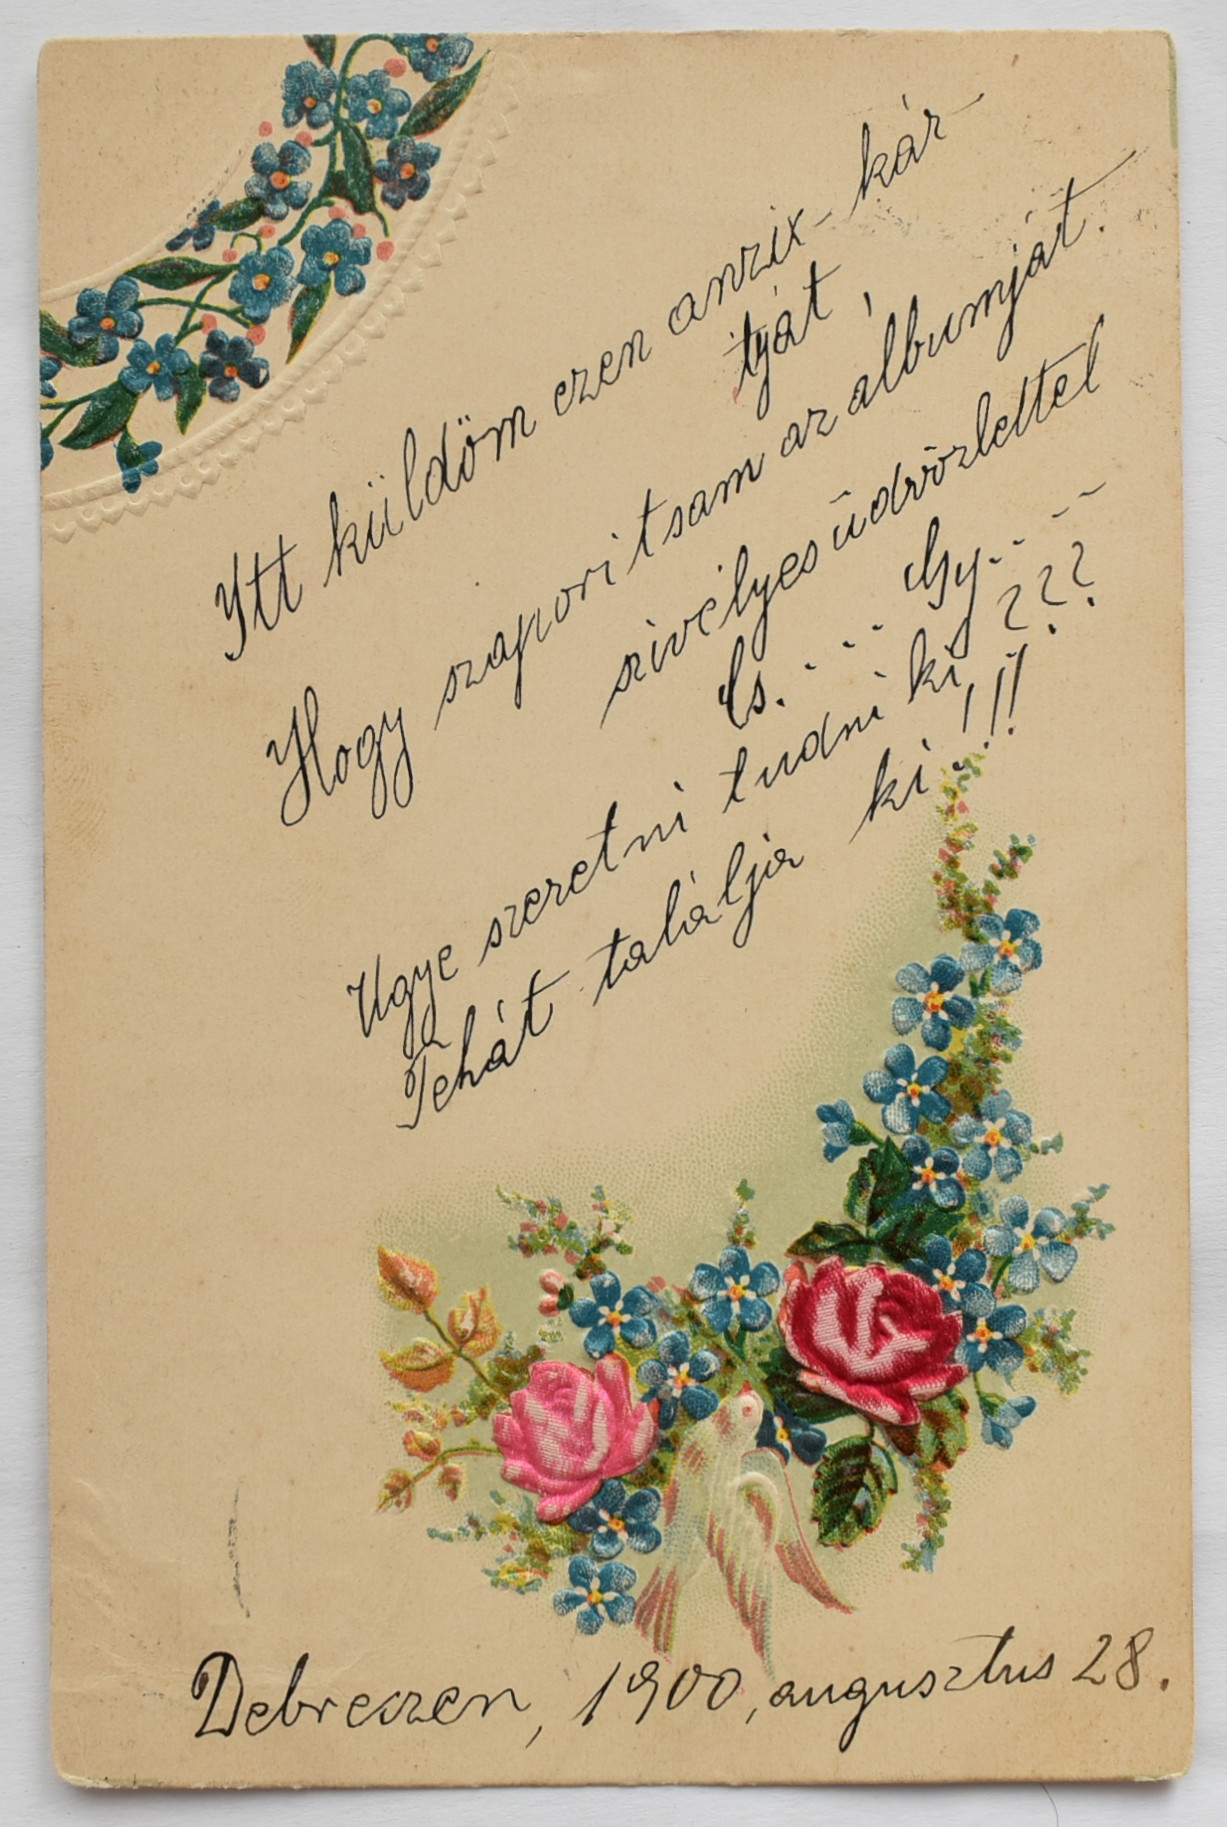 Itt küldöm ezen anzix-kár-
tyát,
Hogy szaporitsam az albumját.
szivélyes üdvözlettel
Cs. . . . Gy. . . - -
Ugye szeretni tudni ki ???
Tehát talàlja ki!!!
Debreczen, 1900, augusztus 28.